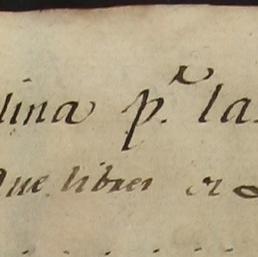 lina p.ʳ la
que libres